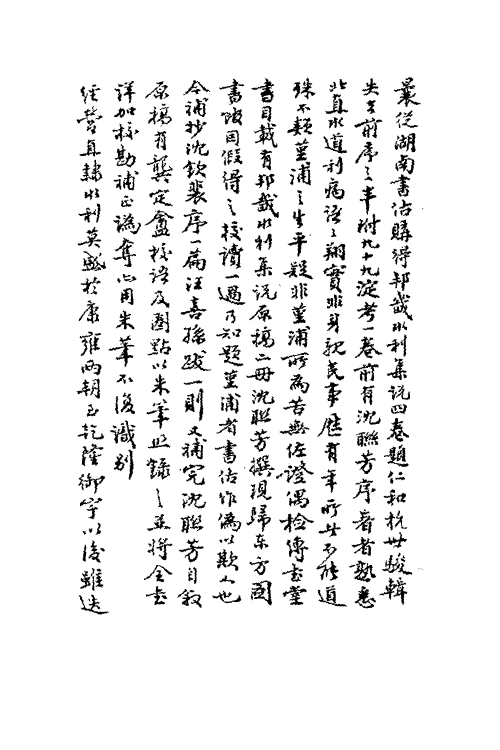 曩從湖南書估購得邦畿水利集說四卷題仁和杭世駿輯
失去前序之半附九十九淀考一卷前有沈聯芳序著者熟悉
此直水道利病語之翔實非身親民事歷有年所者不能道
殊不類堇浦之生平疑非堇浦所為苦無佐證偶檢傳書堂
書目載有邦畿水利集說原稿二冊沈聯芳撰現歸東方圖
書館因假得之校讀一過乃知題堇浦者書估作偽以欺人也
今補抄沈欽裴序一篇汪喜孫跋一則又補完沈聯芳自敘
原稿有龔定盦校語及圈點以朱筆照錄之並將全書
詳加校勘補正譌奪亦用朱筆不復識別
經營直隸水利莫盛於康雍兩朝至乾隆御宇以後雖迭